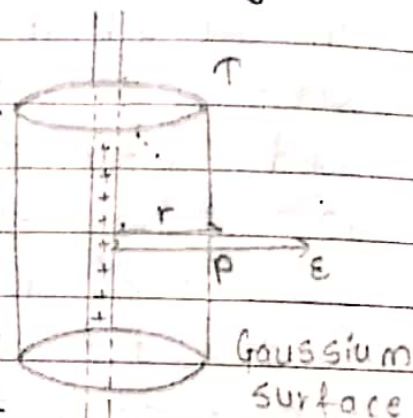 ↑
r
P ε
Gaussium
surface